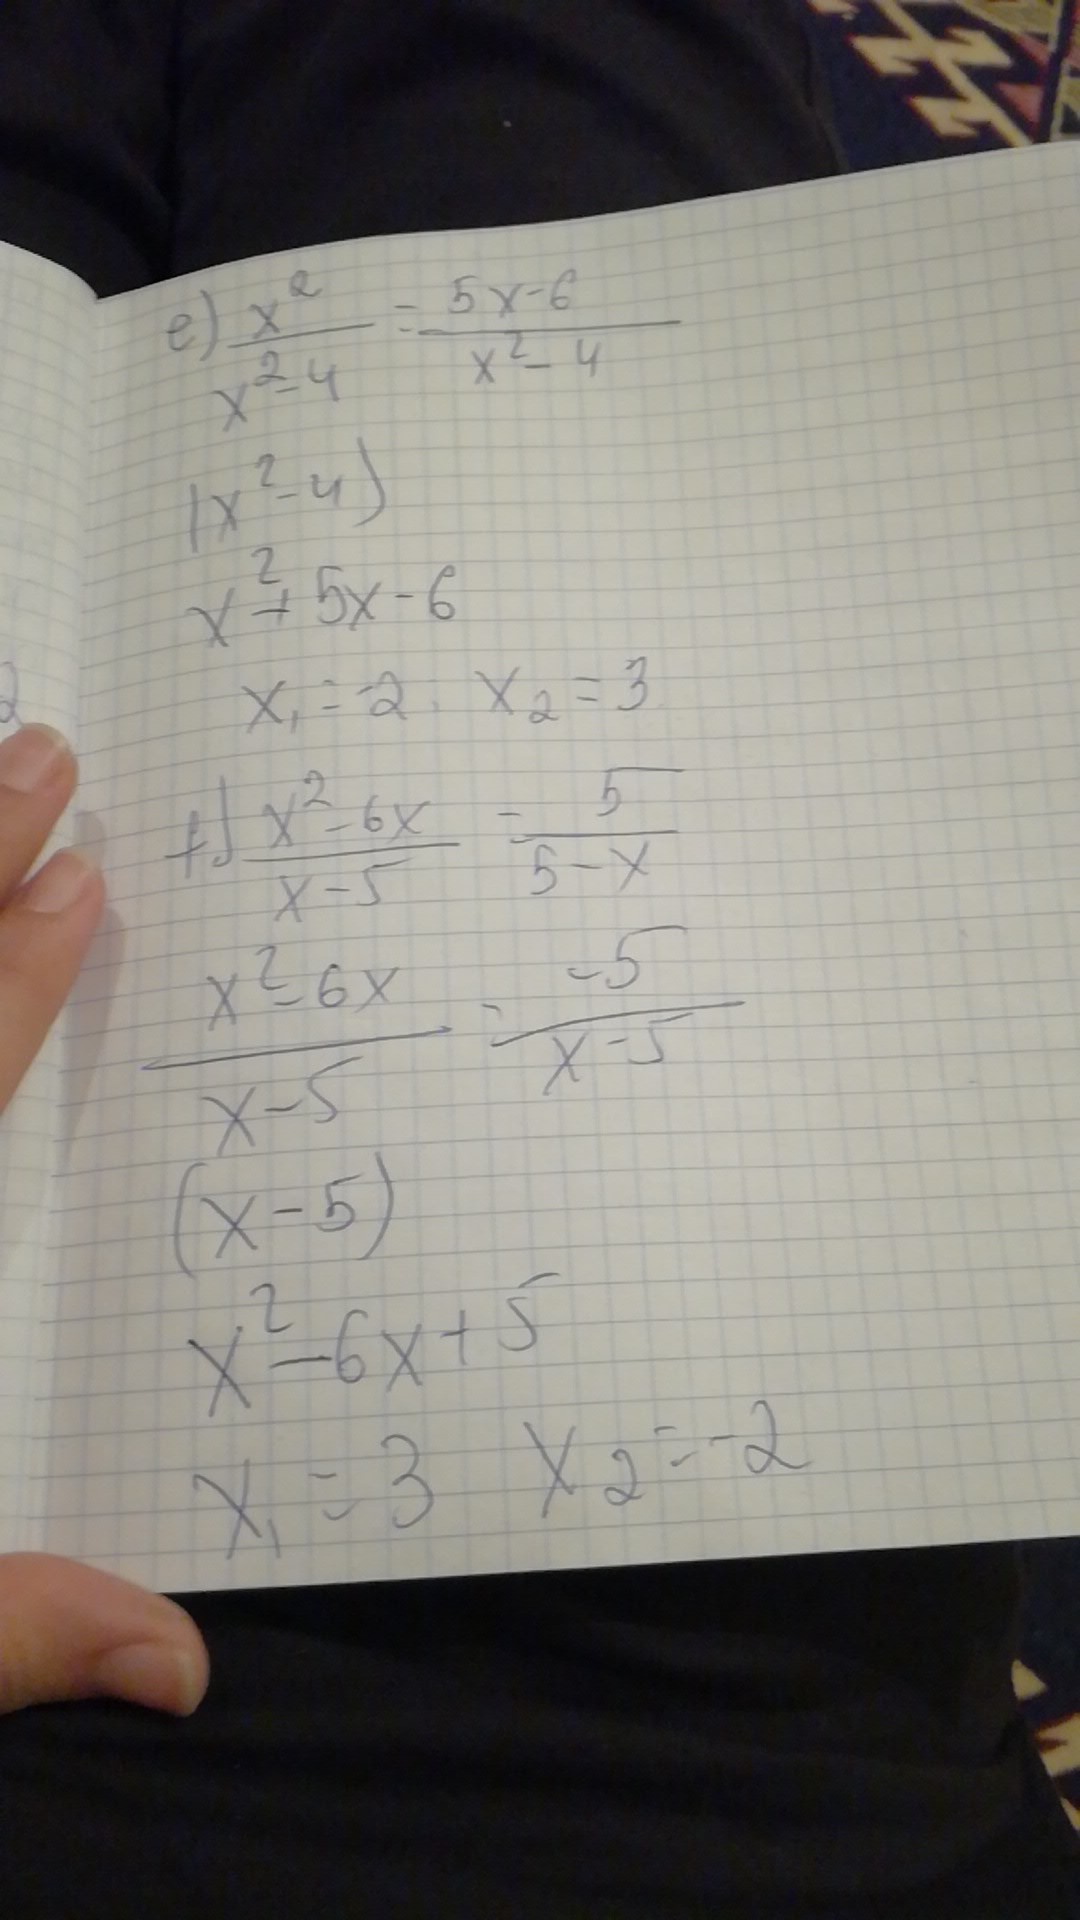 e) x²/x²-4 = 5x-6/x²-4
(x²-4)
x²+5x-6
x₁=-2 x₂=3
f) x²-6x/x-5 = 5/5-x
x²-6x/x-5 = -5/x-5
(x-5)
x²-6x+5
x₁=3 x₂=-2